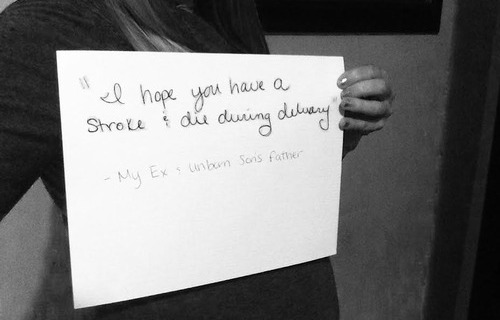 "I hope you have a
Stroke & die during delivery"
- My Ex & unborn son's father